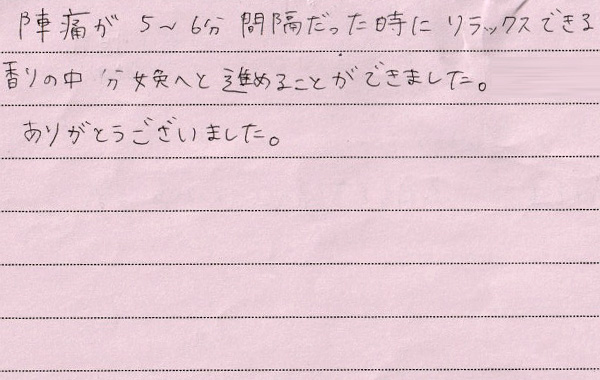 陣痛が 5～6分 間隔だった時に リラックスできる
香りの中 分娩へと進めることができました。
ありがとうございました。